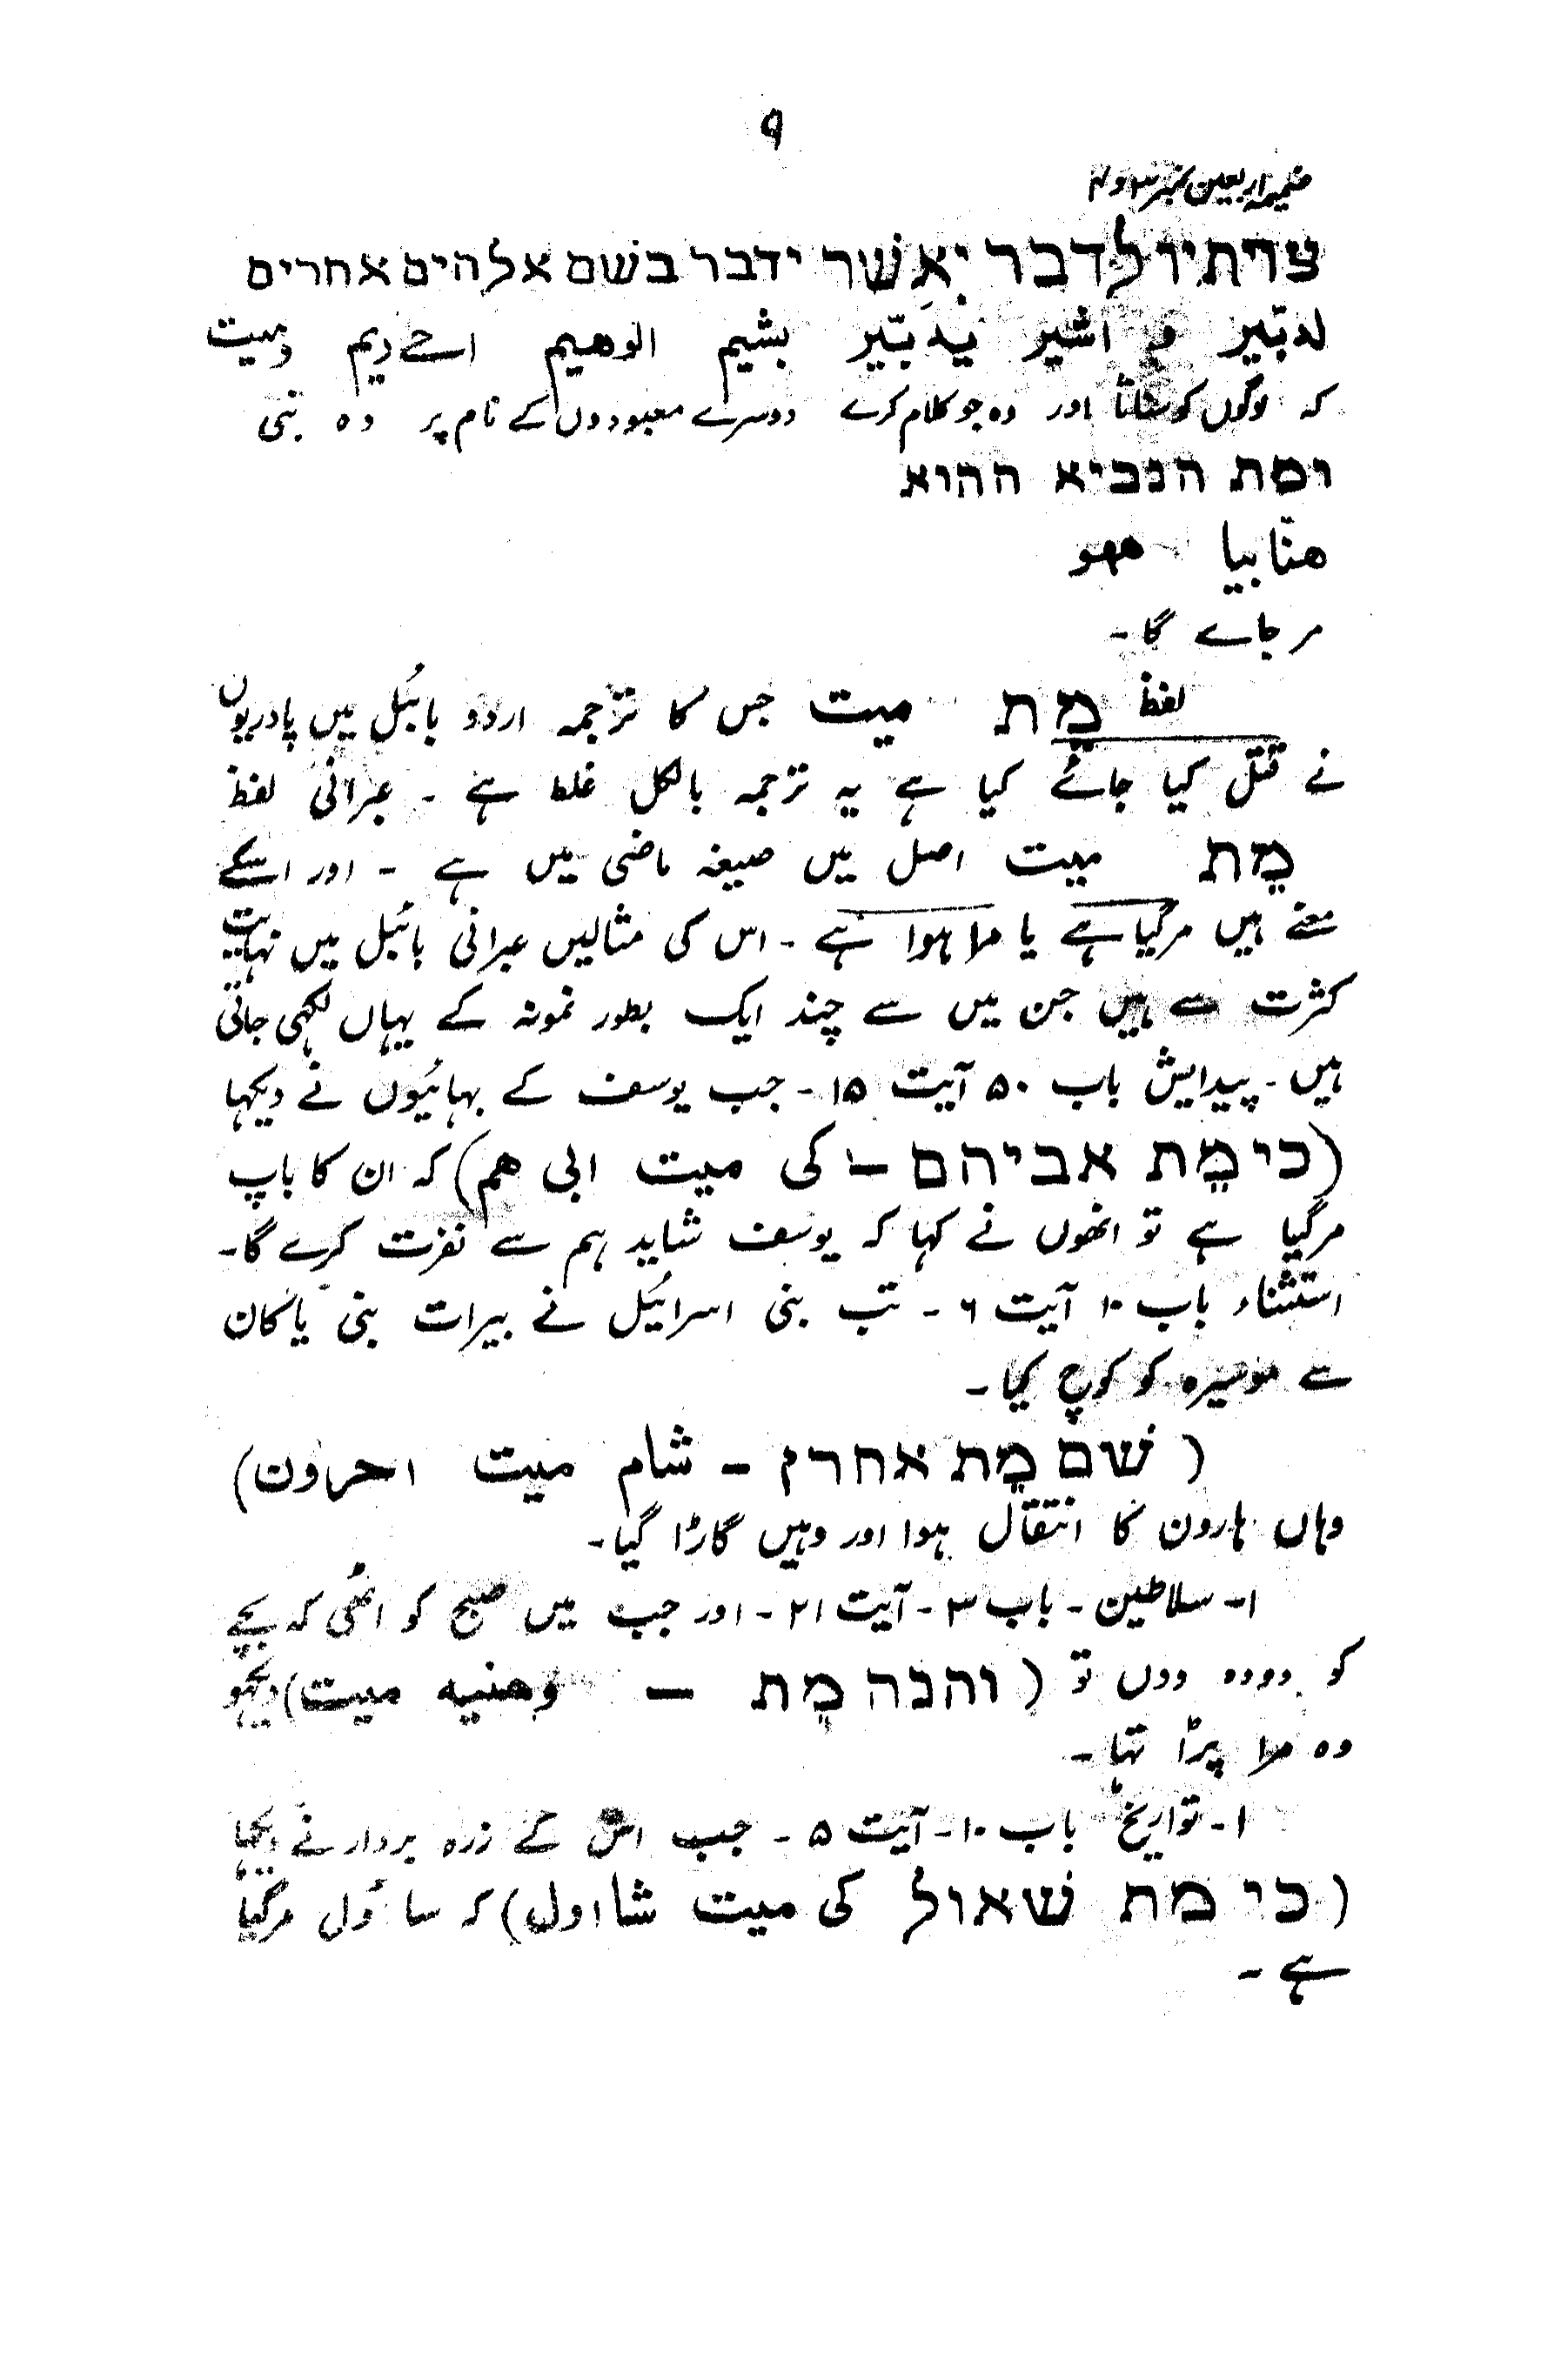 ۹
ضمیمہ اربعین نمبر ۳ و ۴
צויתיו לדבר ואשר ידבר בשם אלהים אחרים
لدبّیر و اشیر یدبّیر بشیم الوھیم احےریم ومیت
کہ لوگوں کو سناتا اور وہ جو کلام کرے دوسرے معبودوں کے نام پر وہ نبی
ומת הנביא ההוא
ھنّابیا ھھو
مر جاے گا۔
لفظ מֵת میت جس کا ترجمہ اردو بائبل میں پادریوں
نے قتل کیا جائے کیا ہے یہ ترجمہ بالکل غلط ہے ۔ عبرانی لفظ
מֵת میت اصل میں صیغہ ماضی میں ہے ۔ اور اسکے
معنے ہیں مرگیا ہے یا مرا ہوا ہے ۔ اس کی مثالیں عبرانی بائبل میں نہایت
کثرت سے ہیں جن میں سے چند ایک بطور نمونہ کے یہاں لکھی جاتی
ہیں ۔ پیدایش باب ۵۰ آیت ۱۵ ۔ جب یوسف کے بہائیوں نے دیکہا
(כי מֵת אביהם – کی میت ابی ھم) کہ ان کا باپ
مرگیا ہے تو انھوں نے کہا کہ یوسف شاید ہم سے نفرت کرے گا۔
استثناء باب ۱۰ آیت ۶ ۔ تب بنی اسرائیل نے بیرات بنی یاکان
سے موسیرہ کو کوچ کیا ۔
(שם מֵת אהרן – شام میت احرون)
وہاں ہارون کا انتقال ہوا اور وہیں گاڑا گیا۔
۱۔ سلاطین ۔ باب ۳ ۔ آیت ۲۱ ۔ اور جب میں صبح کو اٹھی کہ بچے
کو دودہ دوں تو (והנה מֵת – وھنیہ میت) دیکھو
وہ مرا پڑا تہا ۔
۱۔ تواریخ باب ۱۰ ۔ آیت ۵ ۔ جب اس کے زرہ بردار نے دیکھا
(כי מת שאול کی میت شااول) کہ ساؤل مرگیا
ہے ۔